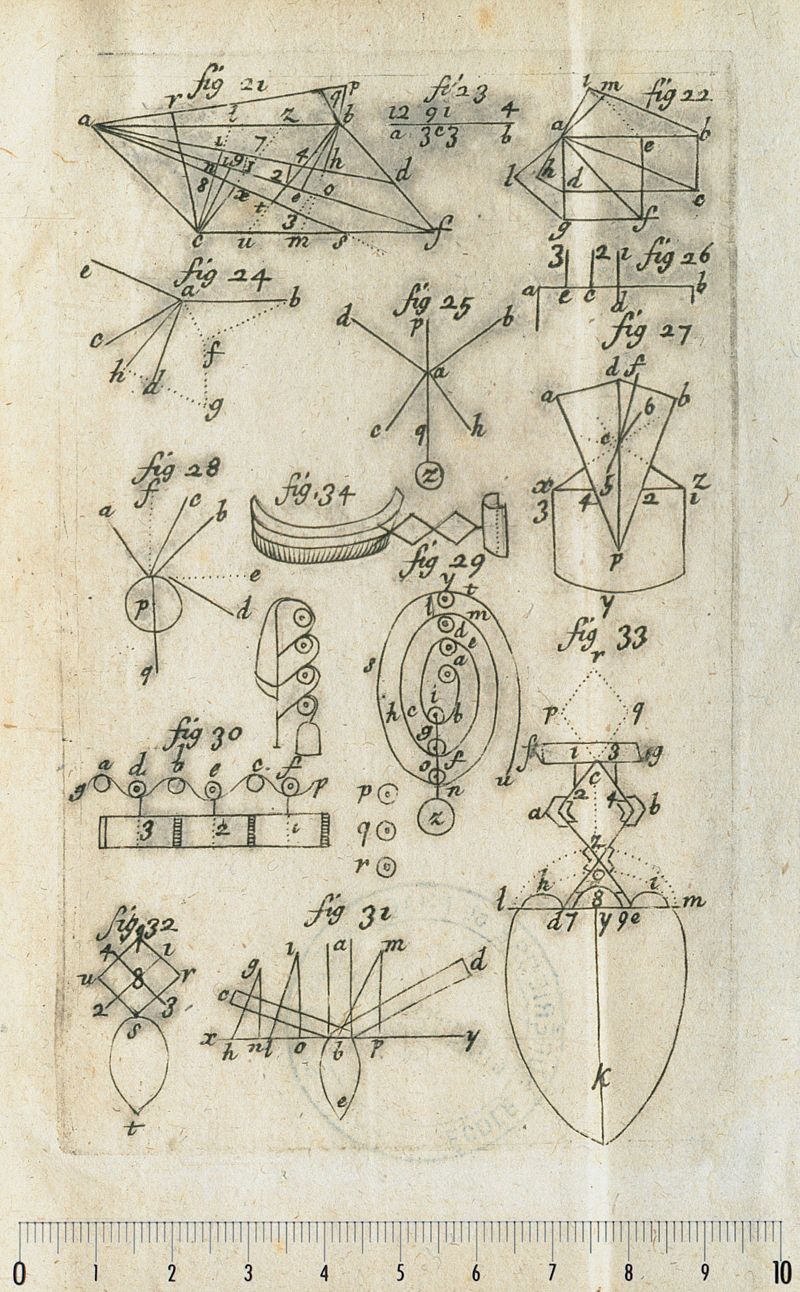 fig 21
r p
q
a l z b
i 7 4 h d
n 9 3 2
8 x t e o
3
c u m s f
fig 23
12 91 4
a 3c3 b
fig 22
i m
a e b
l h d c
g f
fig 24
e a b
c f
h d g
fig 25
d p b
a
c q h
z
fig 26
3 2 1
a e c d b
fig 27
d f
a 6 b
c
x 5 z
3 4 2 1
p
y
fig 28
f c
a b
e
p d
q
fig. 34
fig 29
y t
l m
d e
s a
i
h c b
g
o f
n u
z
fig 30
a d b e c f
g p
3 2 1
p
q
r
fig 33
r
p q
f 1 3 g
c
2 4
a b
z
h i
l 8 m
d7 y 9e
k
fig 32
4 1
u 8 r
2 3
s
t
fig 31
g i a m
c d
x y
h n l o b p
e
0 1 2 3 4 5 6 7 8 9 10